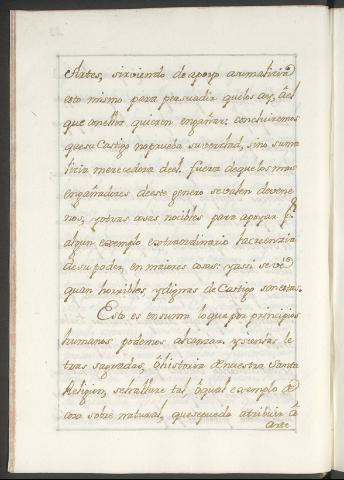 Artes, sirviendo de apoyo asumalicia
esto mismo para persuadir quelos ay, âel
que conellos quieren engañar: concluiremos
quesu Castigo noprueba suverdad, sino suma
licia merecedora deel. fuera dequelos mas
engañadores deeste genero sevalen devene
nos, yotras cosas nocibles para apoyar
algun exemplo extraordinario lacreenzia
desu poder, en maiores cosas: yassi seve
quan horribles, ydignas de Castigo son estas.
Esto es ensuma loque por principios
humanos podemos alcanzar. ysienlas le
tras sagradas, ô historia de nuestra Santa
Religion, sehallare tal, ô qual exemplo de
cosa sobre natural, quesepueda atribuir â
Arte